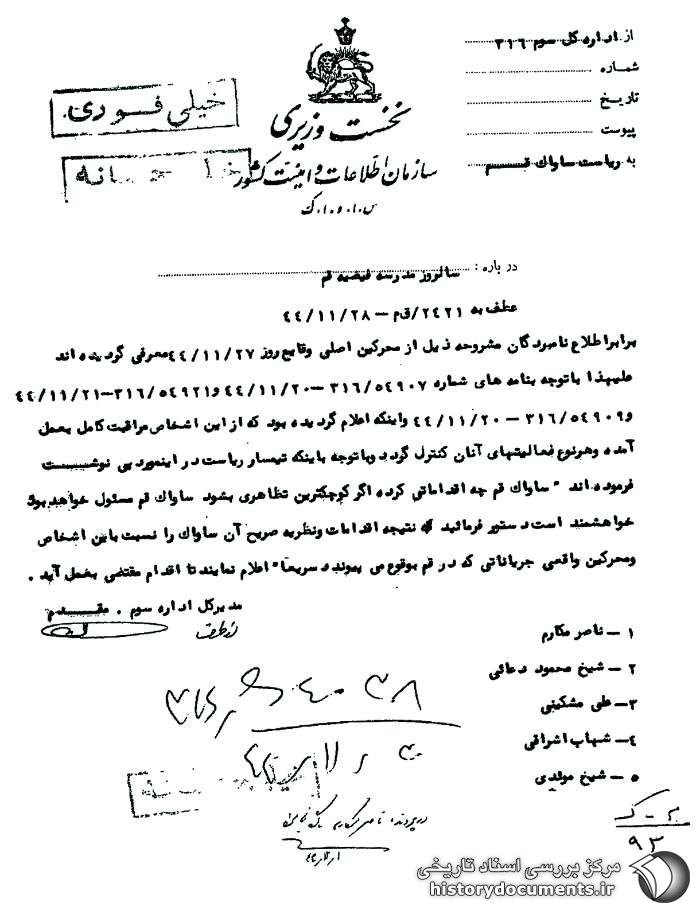 از اداره کل سوم ۳۱۶
شماره
تاریخ
پیوست
به ریاست ساواک قم
نخست وزیری
سازمان اطلاعات و امنیت کشور
س.ا.و.ا.ک
خیلی فوری
در باره: سالروز مدرسه فیضیه قم
عطف به ۲۴۲۱/ق‌م – ۴۴/۱۱/۲۸
برابر اطلاع نامبردگان مشروحه ذیل از محرکین اصلی وقایع روز ۴۴/۱۱/۲۷ معرفی گردیده اند
علیهذا با توجه بنامه های شماره ۳۱۶/۵۴۹۰۷ – ۴۴/۱۱/۲۰ و ۳۱۶/۵۴۹۲۱ – ۴۴/۱۱/۲۱
و ۳۱۶/۵۴۹۰۹ – ۴۴/۱۱/۲۰ واینکه اعلام گردیده بود که از این اشخاص مراقبت کامل بعمل
آمده وهرنوع فعالیتهای آنان کنترل گردد وباتوجه باینکه تیمسار ریاست در اینمورد پی نوشت
فرموده اند " ساواک قم چه اقداماتی کرده اگر کوچکترین تظاهری بشود ساواک قم مسئول خواهد بود"
خواهشمند است دستور فرمائید که نتیجه اقدامات ونظریه صریح آن ساواک را نسبت باین اشخاص
ومحرکین واقعی جریاناتی که در قم بوقوع می پیوندد سریعا" اعلام نمایند تا اقدام مقتضی بعمل آید .
مدیرکل اداره سوم . مقدم
۱ – ناصر مکارم
۲ – شیخ محمود دعائی
۳ – علی مشکینی
۴ – شهاب اشراقی
۵ – شیخ مولدی
۹۳
مرکز بررسی اسناد تاریخی
historydocuments.ir